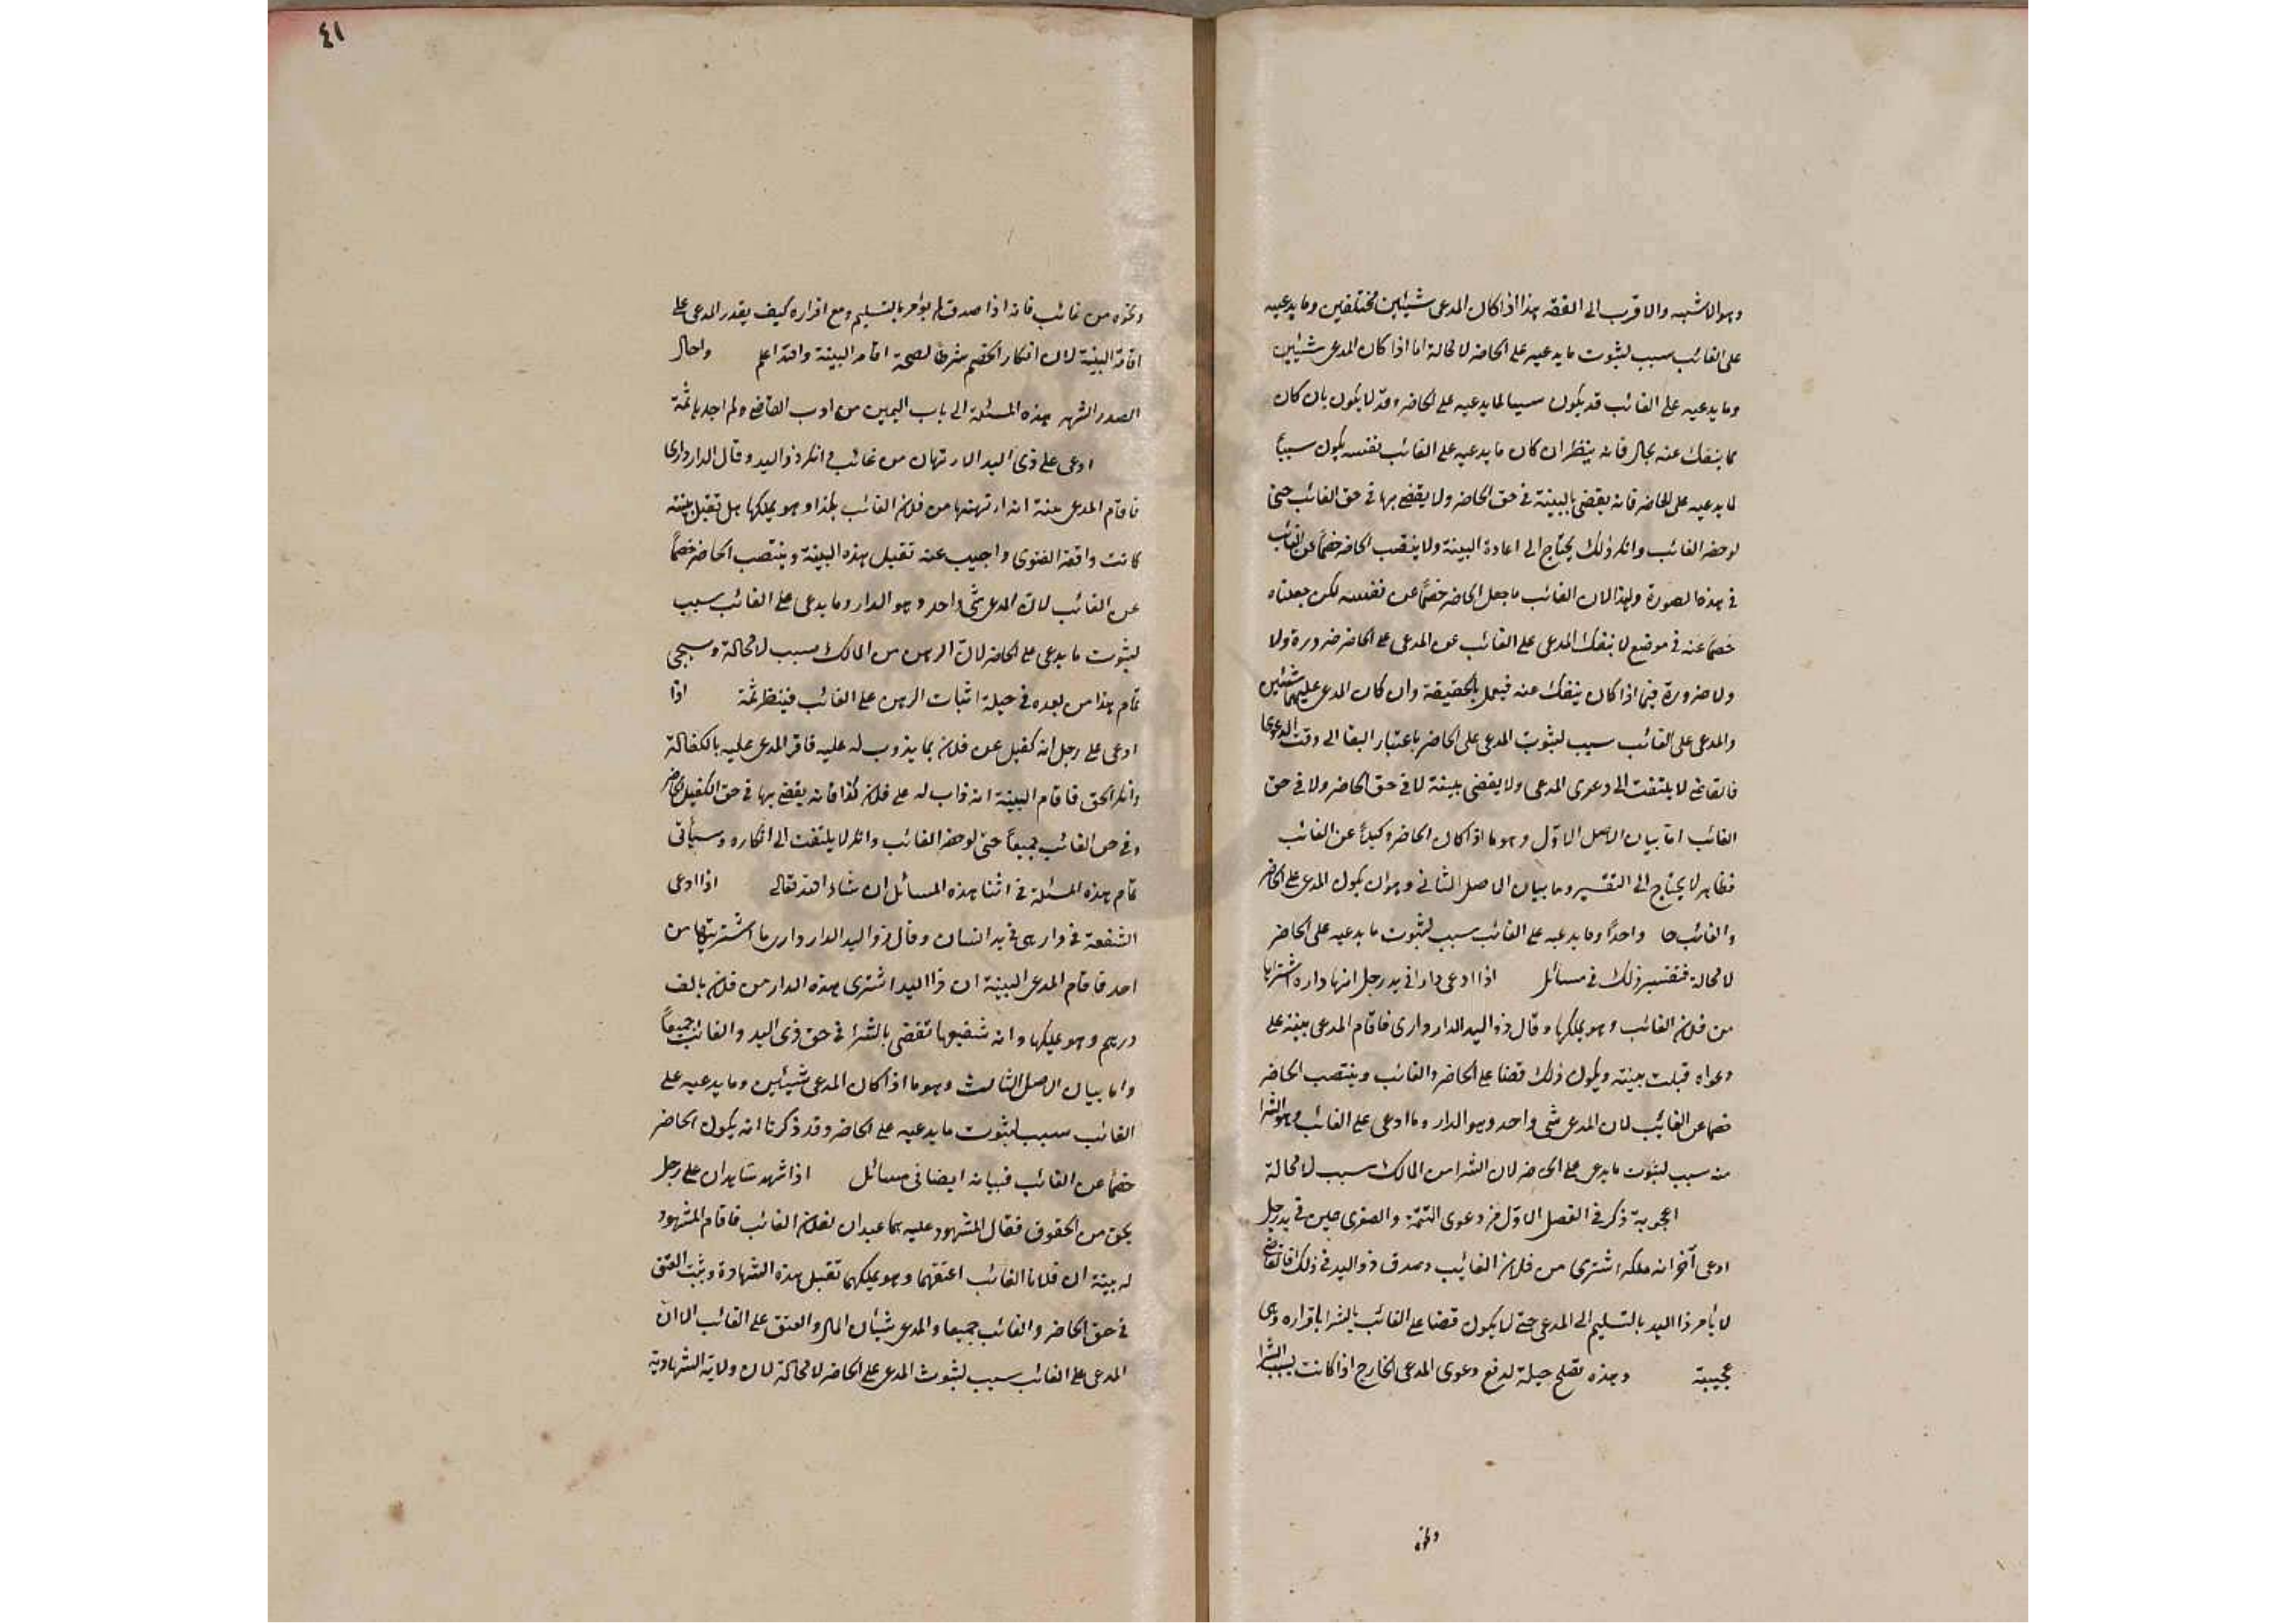 وهو الاشبه والاقرب الى الفقه هذا اذا كان المدعى شيئين مختلفين وما يدعيه
على الغائب سبب لثبوت ما يدعيه على الحاضر لا محالة اما اذا كان المدعى شيئين
وما يدعيه على الغائب قد يكون سببا لما يدعيه على الحاضر وقد لا يكون بان كان
مما ينفك عنه بحال فانه ينظر ان كان ما يدعيه على الغائب نفسه يكون سبباً
لما يدعيه على الحاضر فانه يقضى بالبينة فى حق الحاضر ولا يقضى بها فى حق الغائب حتى
لو حضر الغائب وانكر ذلك يحتاج الى اعادة البينة ولا ينتصب الحاضر خصماً عن الغائب
فى هذه الصورة وهذا لان الغائب ما جعل الحاضر خصماً عن نفسه لكن جعلناه
خصماً عنه فى موضع لا ينفك المدعى على الغائب عن المدعى على الحاضر ضرورة ولا
ولا ضرورة فيما اذا كان ينفك عنه فيعمل بالحقيقة وان كان المدعى عليهما شيئين
والمدعى على الغائب سبب لثبوت المدعى على الحاضر باعتبار البقا الى وقت الدعوى
فالقاضى لا يلتفت الى دعوى المدعى ولا يقضى ببينة لا فى حق الحاضر ولا فى حق
الغائب اما بيان الاصل الاول وهو ما اذا كان الحاضر وكيلاً عن الغائب
فظاهر لا يحتاج الى التفسير وما بيان الاصل الثانى وهو ان يكون المدعى على الحاضر
والغائب واحداً وما يدعيه على الغائب سبب لثبوت ما يدعيه على الحاضر
لا محالة فتفسير ذلك فى مسائل اذا ادعى دارا فى يد رجل انها داره اشتراها
من فلان الغائب وهو يملكها وقال ذو اليد الدار دارى فاقام المدعى بينة على
دعواه قبلت بينته ويكون ذلك قضا على الحاضر والغائب وينتصب الحاضر
خصما عن الغائب لان المدعى شى واحد وهو الدار وما ادعى على الغائب وهو الشرا
منه سبب لثبوت ما يدعى على الحاضر لان الشرا من المالك سبب لا محالة
اعجوبة ذكر فى الفصل الاول من دعوى التتمة والصغرى عين فى يد رجل
ادعى آخر انه ملكه اشترى من فلان الغائب وصدق ذو اليد فى ذلك فالقاضى
لا يأمر ذا اليد بالتسليم الى المدعى حتى لا يكون قضا على الغائب بالشرا باقراره وهى
عجيبة وهذه تصلح حيلة لدفع دعوى المدعى الخارج اذا كانت بسبب الشرا
ونحوه
٤١
ونحوه من غائب فانه اذا صدق لم يؤمر بالتسليم ومع اقراره كيف يقدر المدعى على
اقامة البينة لان انكار الخصم شرط لصحة اقامة البينة والله اعلم واحال
الصدر الشهيد هذه المسئلة الى باب اليمين من ادب القاضى ولم اجدها ثمة
ادعى على ذى اليد الارتهان من غائب فانكر ذو اليد وقال الدار دارى
فاقام المدعى بينة انه ارتهنها من فلان الغائب بكذا وهو يملكها هل تقبل بينته
كانت واقعة الفتوى واجيب عنه تقبل هذه البينة وينتصب الحاضر خصماً
عن الغائب لان المدعى شى واحد وهو الدار وما يدعى على الغائب سبب
لثبوت ما يدعى على الحاضر لان الرهن من المالك سبب لا محالة وسيجى
تمام هذا من بعده فى حيلة اثبات الرهن على الغائب فينظر ثمة اذا
ادعى على رجل انه كفيل عن فلان بما يذوب له عليه فاقر المدعى عليه بالكفالة
وانكر الحق فاقام البينة انه ذاب له على فلان كذا فانه يقضى بها فى حق الكفيل الحاضر
وفى حق الغائب جميعاً حتى لو حضر الغائب وانكر لا يلتفت الى انكاره وسيأتى
تمام هذه المسئلة فى اثنا هذه المسائل ان شاء الله تعالى اذا ادعى
الشفعة فى دار هى فى يد انسان وقال ذو اليد الدار دارى ما اشتريتها من
احد فاقام المدعى البينة ان ذا اليد اشترى هذه الدار من فلان بالف
درهم وهو يملكها وانه شفيعها تقضى بالشرا فى حق ذى اليد والغائب جميعاً
واما بيان الاصل الثالث وهو ما اذا كان المدعى شيئين وما يدعيه على
الغائب سبب لثبوت ما يدعيه على الحاضر وقد ذكرنا انه يكون الحاضر
خصماً عن الغائب فبيانه ايضا فى مسائل اذا شهد شاهدان على رجل
بحق من الحقوق فقال المشهود عليه هما عبدان لفلان الغائب فاقام المشهود
له بينة ان فلانا الغائب اعتقهما وهو يملكهما تقبل هذه الشهادة ويثبت العتق
فى حق الحاضر والغائب جميعا والمدعى شيئان المال والعتق على الغائب الا ان
المدعى على الغائب سبب لثبوت المدعى على الحاضر لا محالة لان ولاية الشهادة